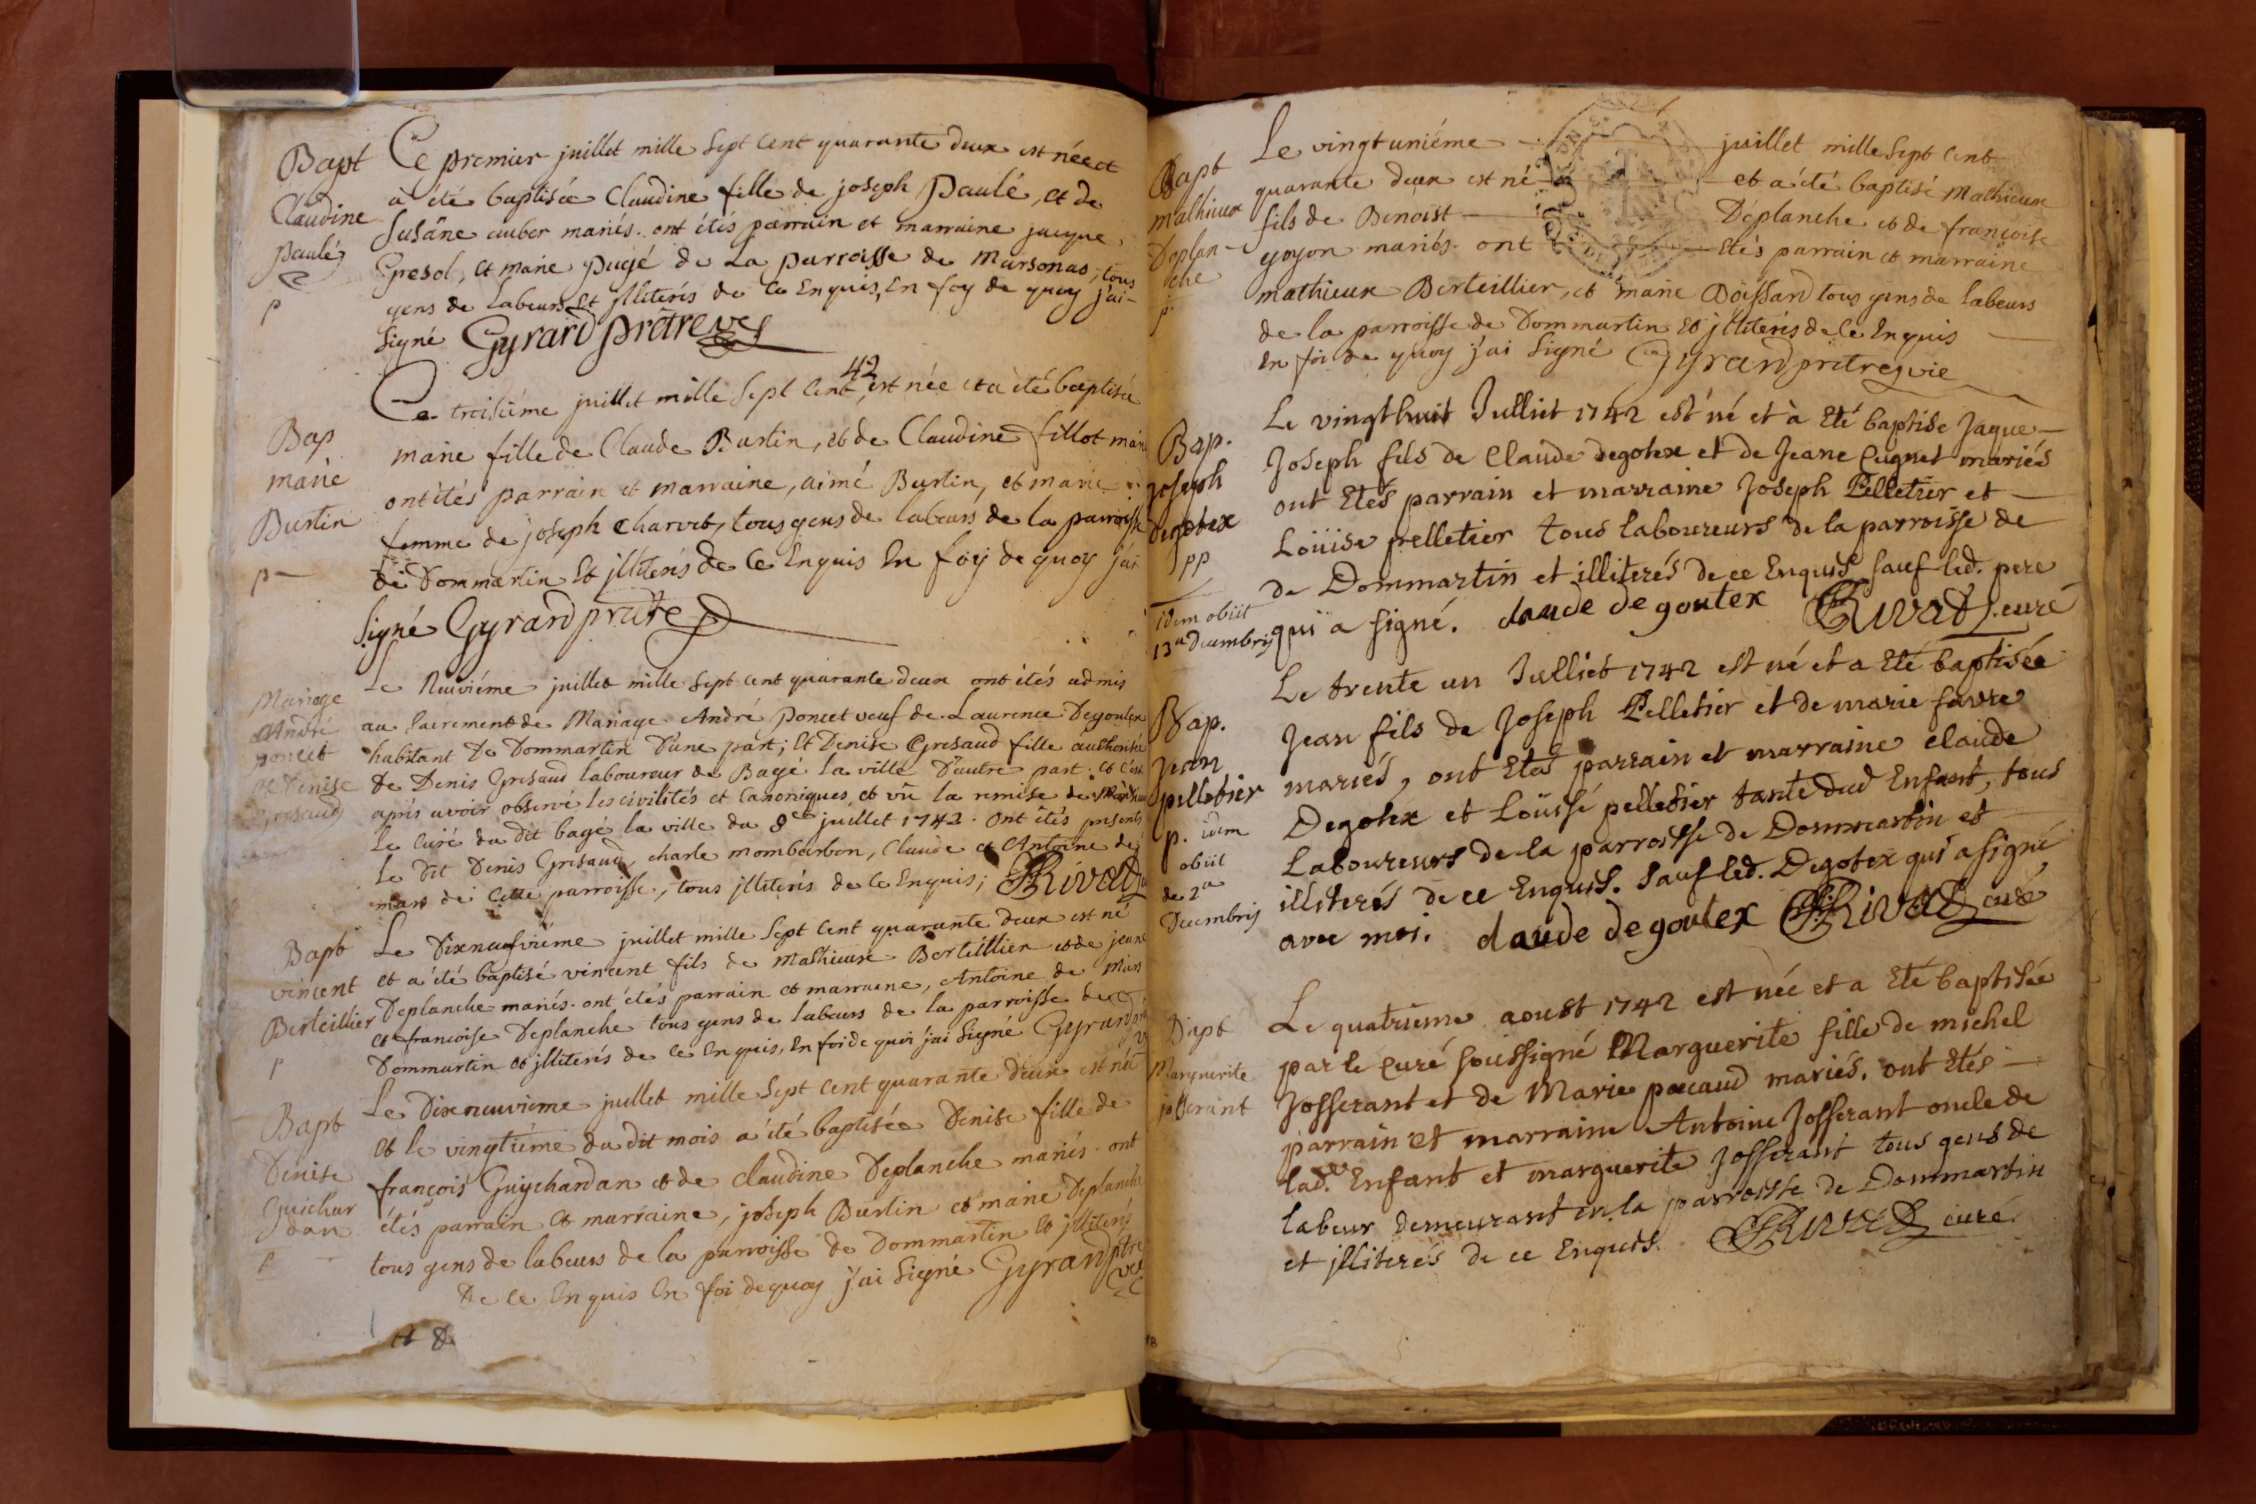 Bapt
Claudine
paulé
p
Ce premier juillet mille sept cent quarante deux est née et
a été baptisée Claudine fille de joseph paulé, et de
Susãne auber mariés. ont étés parrain et marraine jacque
Gresol, et marie pugé de La parroisse de Marsonas, tous
gens de labeurs et jlliterés de ce Enquis, En foy de quoy j'ai
signé Gyrard prãtre
Bap
marie
Burtin
p
Ce troisiéme juillet mille sept cent 42 est née et a été baptisée
marie fille de Claude Burtin, et de Claudine fillot
ont étés parrain et marraine, aimé Burtin, et marie
femme de joseph Charvet, tous gens de labeurs de la parroisse
de Dommartin et jlliterés de ce Enquis En foy de quoy j'ai
signé Gyrard prãtre
Mariage
André
poncet
et Denise
Gresaud
Le Neuviéme juillet mille sept cent quarante deux ont étés admis
au sacrement de Mariage André poncet veuf de Laurence Degoutex
habitant de Dommartin D'une part; et Denise Gresaud fille authorisée
de Denis Gresaud laboureur de Bagé la ville D'autre part
aprés avoir observé les civilités et Canoniques, et vũ la remise de
Le curé du dit bagé la ville du 8e juillet 1742. ont étés presents
le dit Denis Gresaud, charle mombarbon, Claude et Antoine de
mars de cette parroisse, tous jlliterés de ce Enquis; Rivat
Bapt
vincent
Berteillier
p
Le Dixneufviéme juillet mille sept cent quarante deux est né
et a été baptisé vincent fils de Mathieux Berteillier et de jeane
Deplanche mariés. ont étés parrain et marraine, Antoine de Mars
et francoise Deplanche tous gens de labeurs de la parroisse de
Dommartin et jlliterés de ce Enquis, En foi de quoi j'ai signé Gyrard
Bapt
Denise
Guichar
dan
p
Le Dixneuvieme juillet mille sept cent quarante deux est née
et le vingtiéme du dit mois a été baptisée Denise fille de
françois Guychardan et de claudine Deplanche mariés. ont
étés parrain et marraine, joseph Burtin et marie Deplanche
tous gens de labeurs de la parroisse de Dommartin et jlliterés
De ce Enquis En foi de quoy j'ai signé Gyrard ptre
vic
Bapt
mathieux
Deplan-
che
p
Le vingtuniéme juillet mille sept cent
quarante deux est né et a été baptisé Mathieux
fils de Benoist Déplanche et de françoise
goyon mariés. ont étés parrain et marraine
mathieux Berteillier, et marie Boissard tous gens de labeurs
de la parroisse de Dommartin et jlliterés de ce Enquis
En foi de quoy j'ai signé Gyrard pritre vic
Bap.
joseph
degotex
pp
idem obiit
13a Decembris
Le vingthuit Julliet 1742 est né et à Eté baptisé Jaque
Joseph fils de Claude degotex et de Jeane Cugnet mariés
ont Etés parrain et marraine Joseph Pelletier et
Loüise pelletier tous laboureurs de la parroisse de
de Dommartin et illiterés de ce Enquis sauf led. pere
qui a signé. claude degoutex Rivat curé
Bap.
jean
pelletier
p. idem
obiit
de 2a
Decembris
Le trente un Julliet 1742 est né et a Eté baptisée
Jean fils de Joseph Pelletier et de marie favre
mariés, ont Etés parrain et marraine claude
Degotex et Loüisé pelletier tante dud Enfant, tous
Laboureurs de la parroisse de Dommartin et
illiterés de ce Enquis. sauf led. Degotex qui a signé
avec moi. claude degoutex Rivat curé
Bapt
Marguerite
josserant
Le quatrieme aoust 1742 est née et a Eté baptisée
par le Curé soussigné Marguerite fille de michel
Josserant et de Marie pacaud mariés. ont Etés
parrain et marraine Antoine Josserant oncle de
lad. Enfant et marguerite Josserant tous gens de
labeur demeurant en la parroisse de Dommartin
et jlliterés de ce Enquis. Rivat curé.